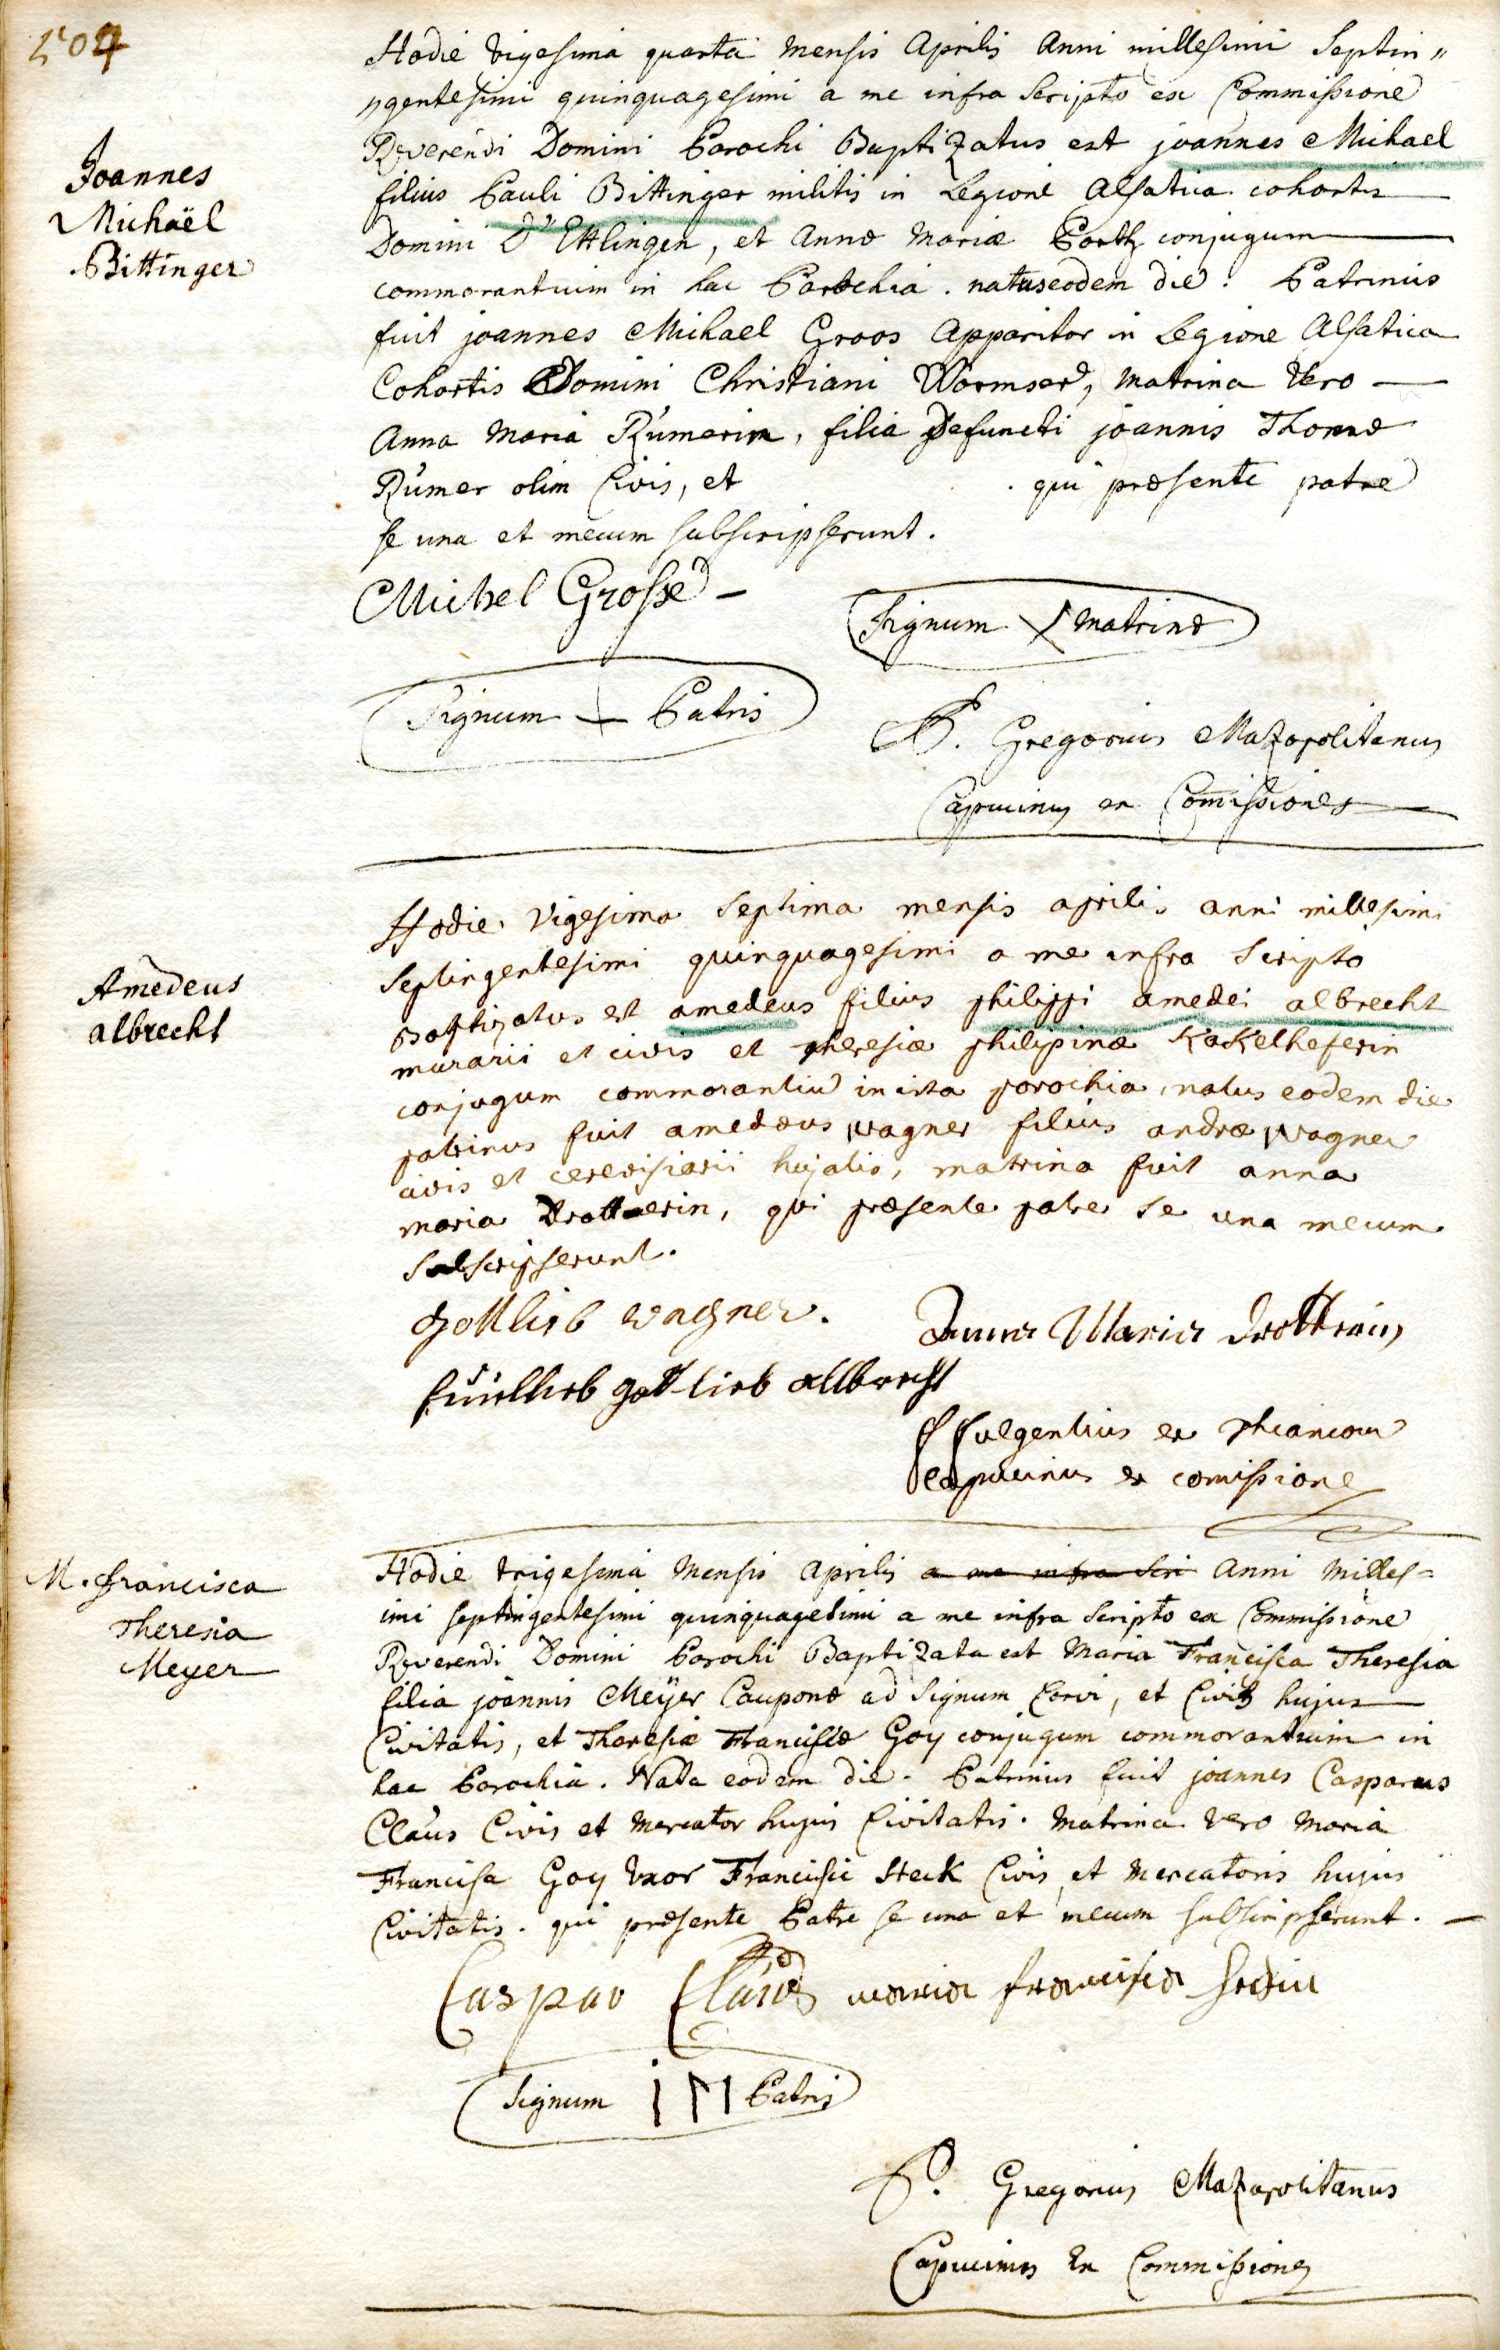 204
Joannes
Michaël
Bittinger
Hodie vigesima quarta mensis Aprilis Anni millesimi Septin„
„gentesimi quinquagesimi a me infra Scripto ex Commissione
Reverendi Domini Parochi Baptizatus est joannes Michael
filius Pauli Bittinger militis in Legione Alsatica cohortis
Domini D'Ettlingen, et Annæ Mariæ conjugum
commorantium in hac Parochia. natus eodem die. Patrinus
fuit joannes Michael Groos Apparitor in Legione Alsatica
Cohortis Domini Christiani Wormser, Matrina Vero
Anna Maria Rúmerin, filia Defuncti joannis Thomæ
Rúmer olim Civis, et . qui præsente patre
se una et mecum subscripserunt.
Michel Grosse
Signum X Matrinæ
Signum + Patris
P. Gregorius Mazopolitanus
Capucinus ex Comissione
Amedeus
albrecht
Hodie vigesima Septima mensis aprilis anni millesimi
Septingentesimi quinquagesimi a me infra Scripto
Baptizatus est amedeus filius philippi amedei albrecht
murarii et civis et theresiæ philipinæ Kakelheferin
conjugum commorantiu in ista parochia, natus eodem die
patrinus fuit amedæus wagner filius andræ wagner
civis et cerevisiarii hujatis, matrina fuit anna
maria Drotterin, qui præsente patre se una mecum
Subscripserunt.
gottlieb wagner.
Anna Maria Drotterin
gottlieb allbrecht
P fulgentius ex
Capucinus ex comissione
M. Francisca
Theresia
Meyer
Hodie trigesima Mensis Aprilis a me infra Scri Anni Milles=
imi septingentesimi quinquagesimi a me infra Scripto ex Commissione
Reverendi Domini Parochi Baptizata est Maria Francisca Theresia
filia joannis Meÿer Cauponæ ad Signum Corvi, et Civis hujus
Civitatis, et Theresiæ Franciscæ Goy conjugum commorantium in
hac Parochia. Nata eodem die. Patrinus fuit joannes Casparus
Claús Civis et Mercator hujus Civitatis. Matrina vero Maria
Francisca Goy Uxor Francisci Steck Civis, et Mercatoris hujus
Civitatis. qui præsente Patre se una et mecum subscripserunt.
Caspar Claus maria francisca
Signum Patris
P. Gregorius Mazopolitanus
Capucinus Ex Commissione